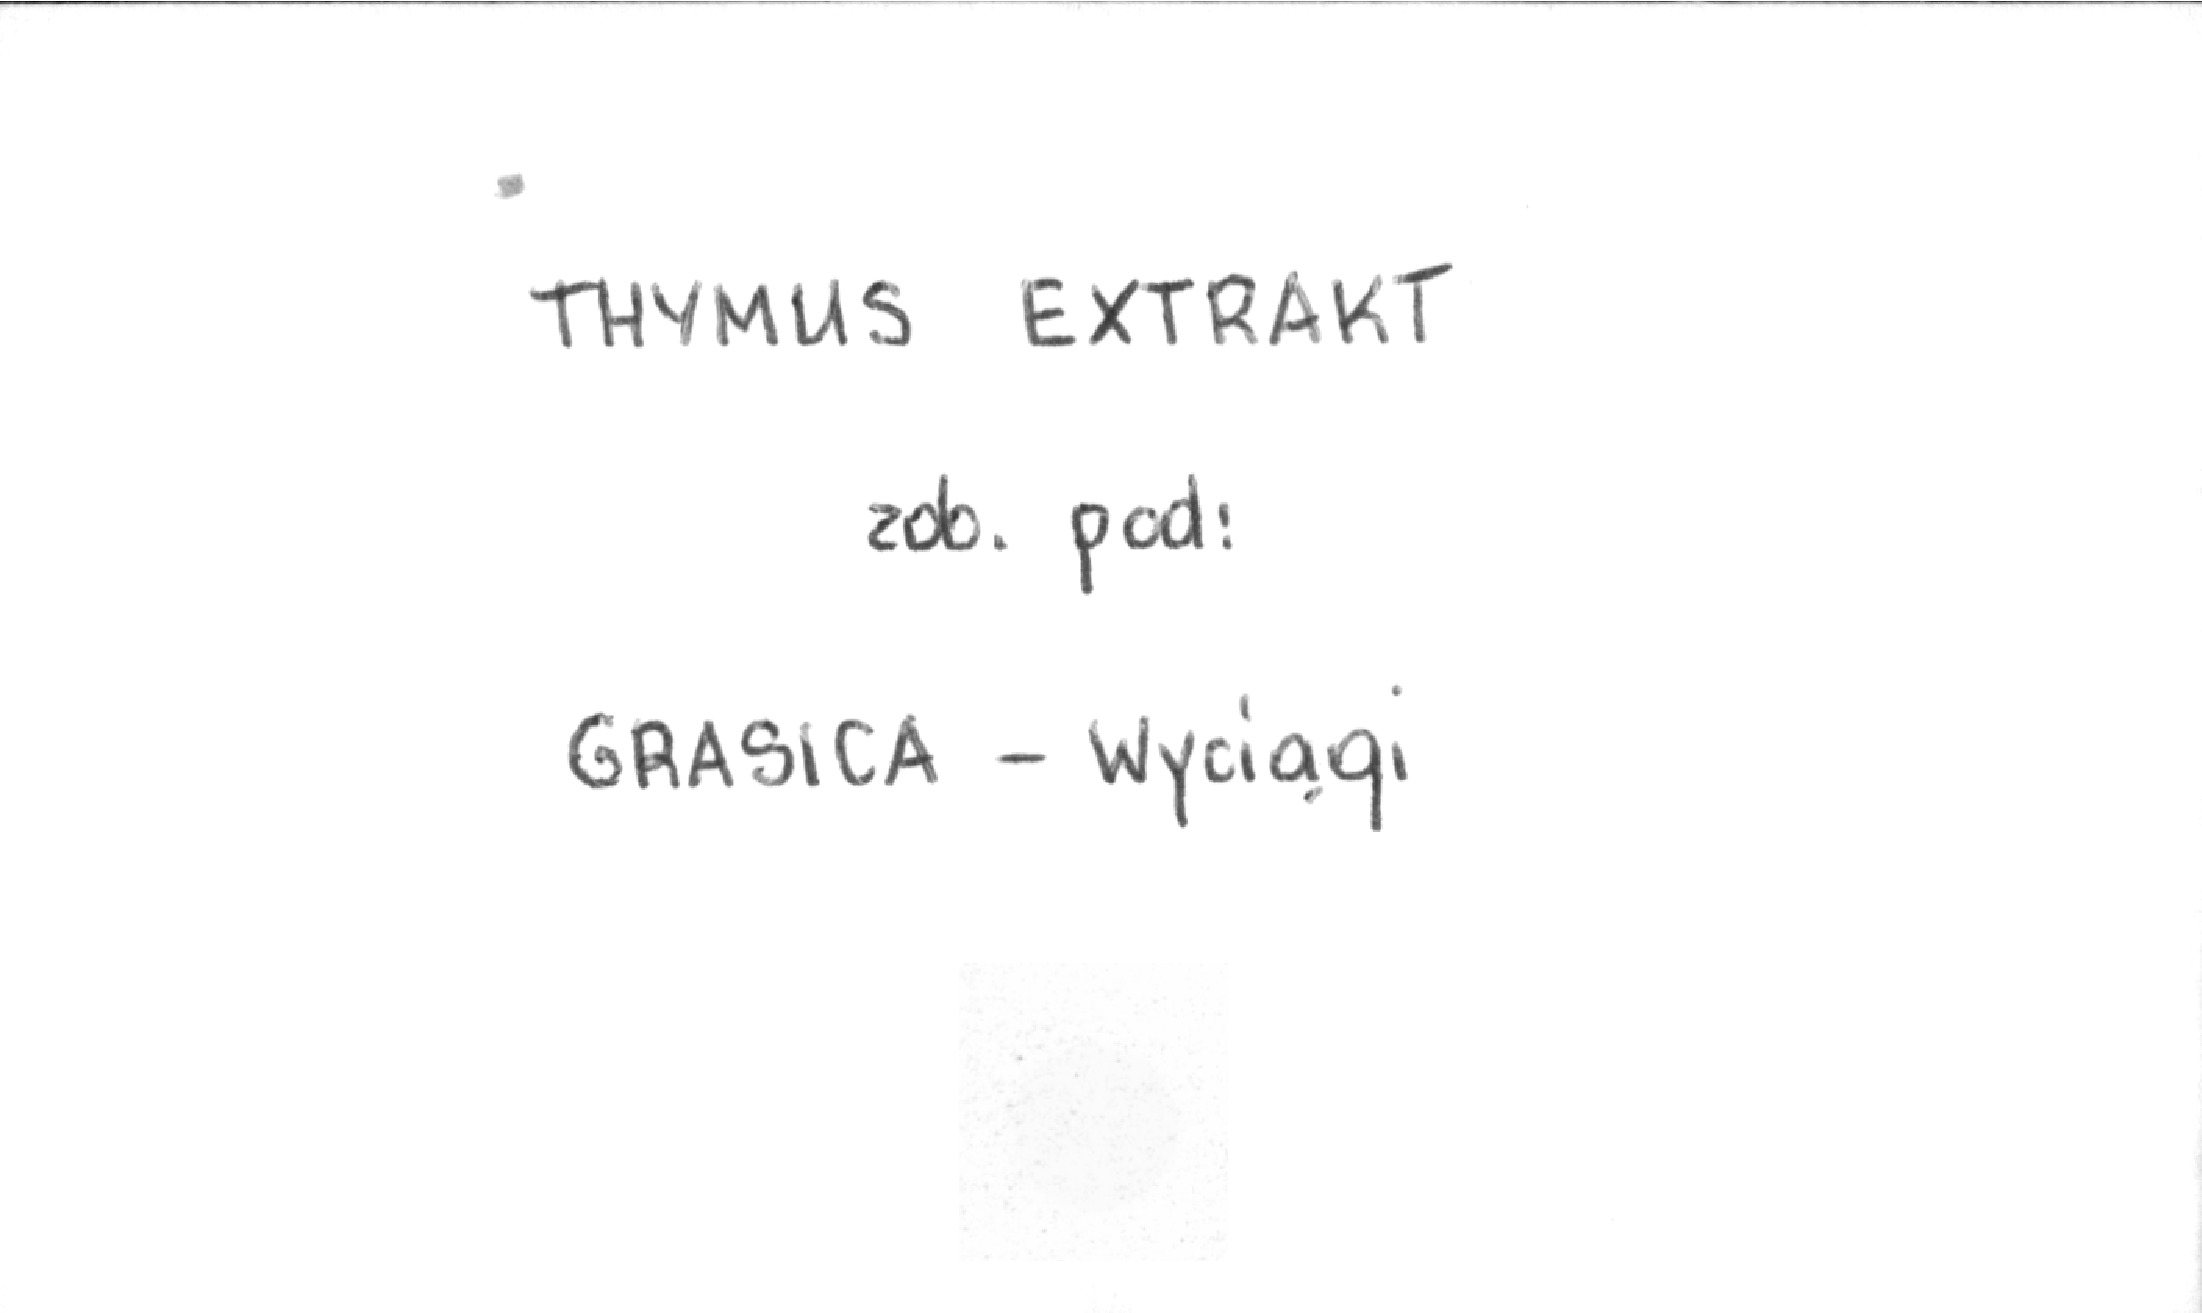 THYMUS EXTRAKT
zob. pod:
GRASICA - Wyciągi